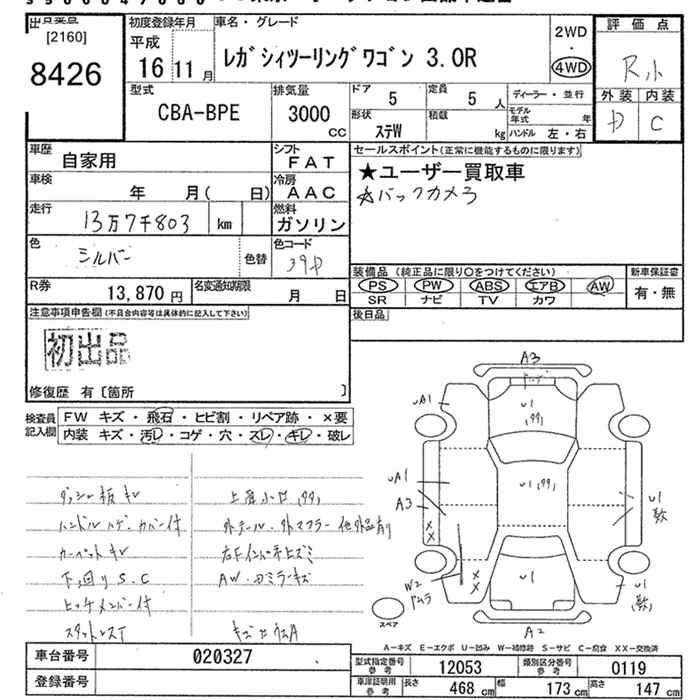 [2160]
8426
初度登録年月
平成
16 11 月
車名・グレード
レガシィツーリングワゴン 3.0R
2WD
・
4WD
評価点
R小
外装 内装
D C
型式
CBA-BPE
排気量
3000
CC
ドア
5
定員
5 人
ディーラー・並行
形状
ステW
積載
kg
モデル年式
年
ハンドル 左・右
車歴
自家用
シフト
FAT
車検
年 月( 日)
冷房
AAC
走行
13万7千803 km
燃料
ガソリン
色
シルバー
色替
色コード
39D
R券
13,870 円
名変通知期限
月 日
セールスポイント(正常に機能するものに限ります)
★ユーザー買取車
☆バックカメラ
装備品(純正品に限り○をつけてください)
PS PW ABS エアB AW
SR ナビ TV カワ
新車保証書
有・無
後日品
注意事項申告欄(不具合内容等は具体的に記入して下さい)
初出品
修復歴 有〔箇所 〕
検査員記入欄
FW キズ・飛石・ヒビ割・リペア跡・×要
内装 キズ・汚レ・コゲ・穴・スレ・キレ・破レ
ダッシュ板キレ
ハンドルハゲ、カバー付
カーペットキレ
下回りS.C
ヒッチメンバー付
スタットレスT
外テール・外マフラー他外品有り
AW・Dミラーキズ
A3
UA1
U1
(99)
UA1
A3
U1(99)
U1
数
XX
W2
ドムラ
XX
U1
U1
(数)
スペア
A2
A-キズ E-エクボ U-凹み W-補修跡 S-サビ C-腐食 XX-交換済
車台番号 020327
登録番号
型式指定番号 参考 12053
類別区分番号 参考 0119
車庫証明用 参考 長さ 468 cm 幅 173 cm 高さ 147 cm